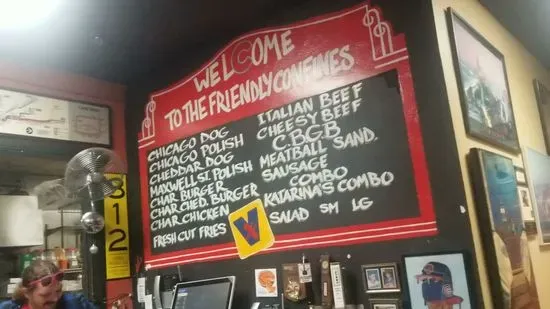 WELCOME
TO THE FRIENDLY CONFINES
CHICAGO DOG
CHICAGO POLISH
CHEDDAR DOG
MAXWELL ST. POLISH
CHAR BURGER
CHAR CHED. BURGER
CHAR CHICKEN
FRESH CUT FRIES
ITALIAN BEEF
CHEESY BEEF
C.B.G.B
MEATBALL SAND.
SAUSAGE
COMBO
KATARINA'S COMBO
SALAD SM LG
V
312